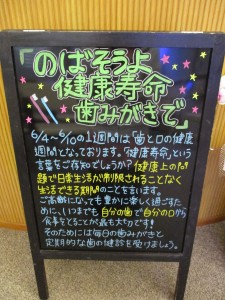 「のばそうよ
健康寿命
歯みがきで」
6/4～6/10の1週間は「歯と口の健康
週間」となっております。「健康寿命」という
言葉をご存知でしょうか？健康上の問
題で日常生活が制限されることなく
生活できる期間のことを言います。
ご高齢になっても豊かに楽しく過ごすた
めに、いつまでも自分の歯で自分の口から
食事をとることが最も大切です！
そのためには毎日の歯みがきと
定期的な歯の健診を受けましょう。